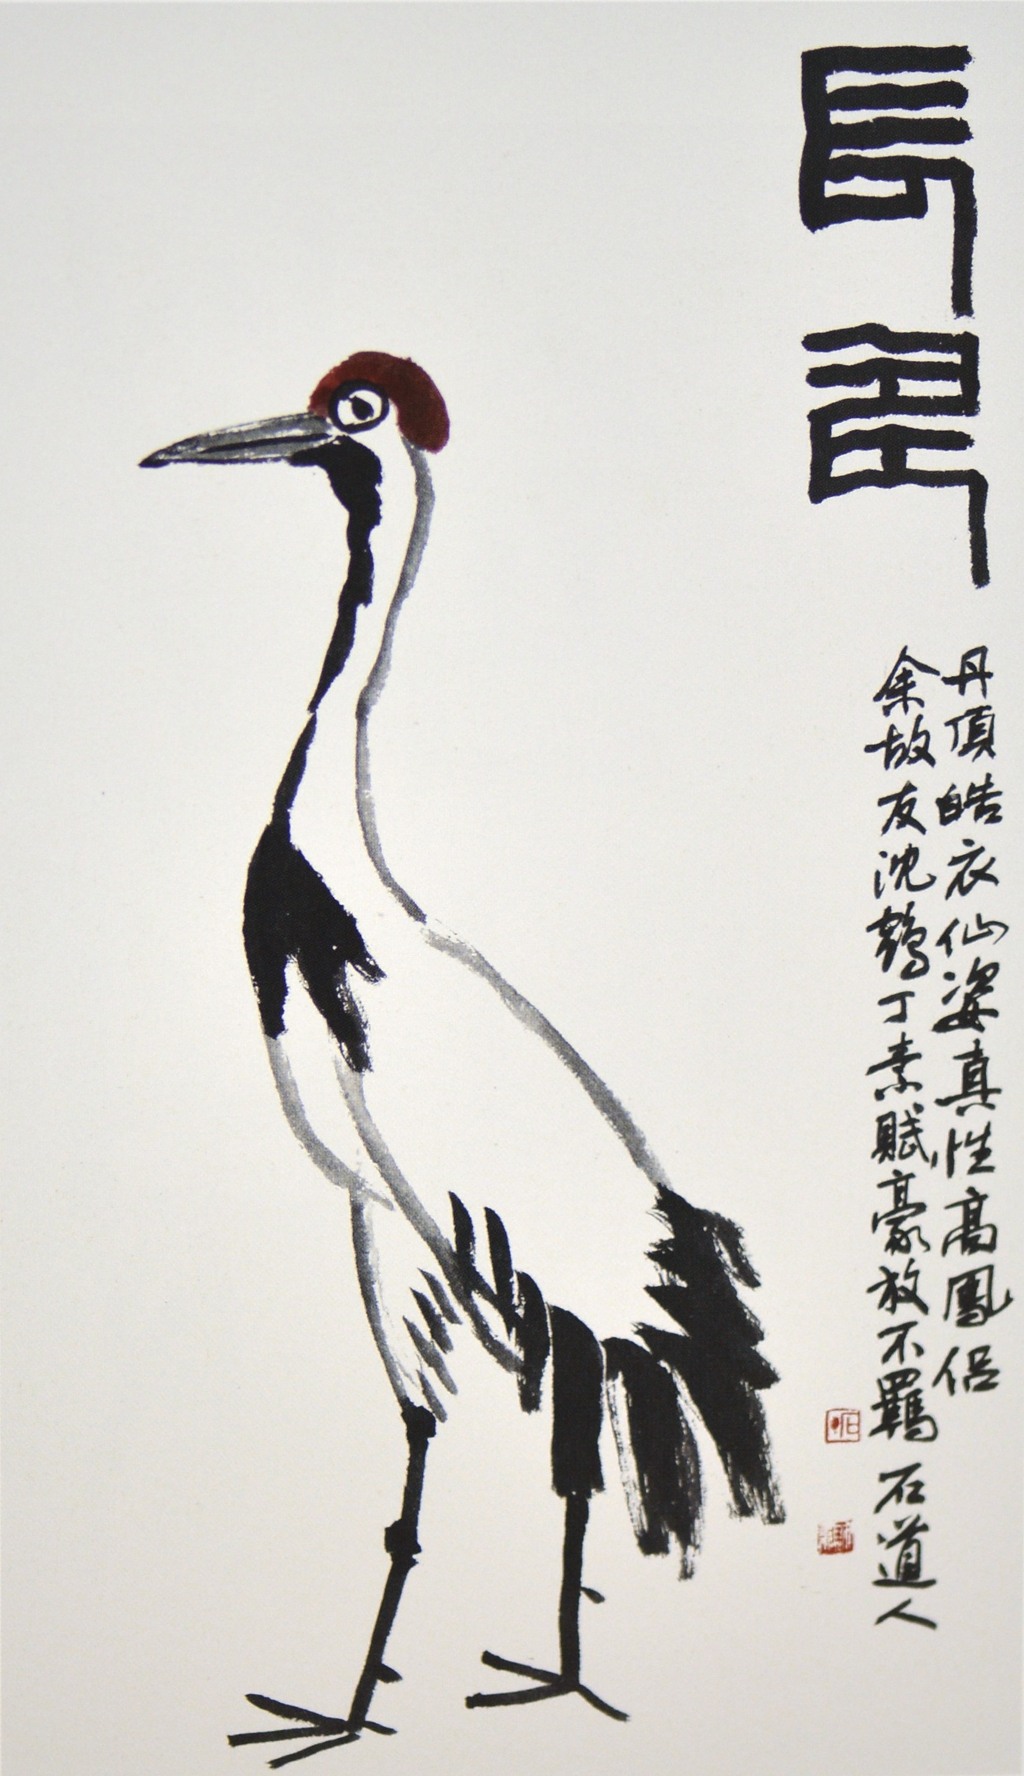 長年
丹頂皓衣仙姿真性高鳳侶
余故友沈鶴丁素賦豪放不羈 石道人